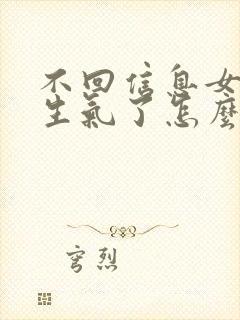 不回信息女
生氣了怎麼
穹烈